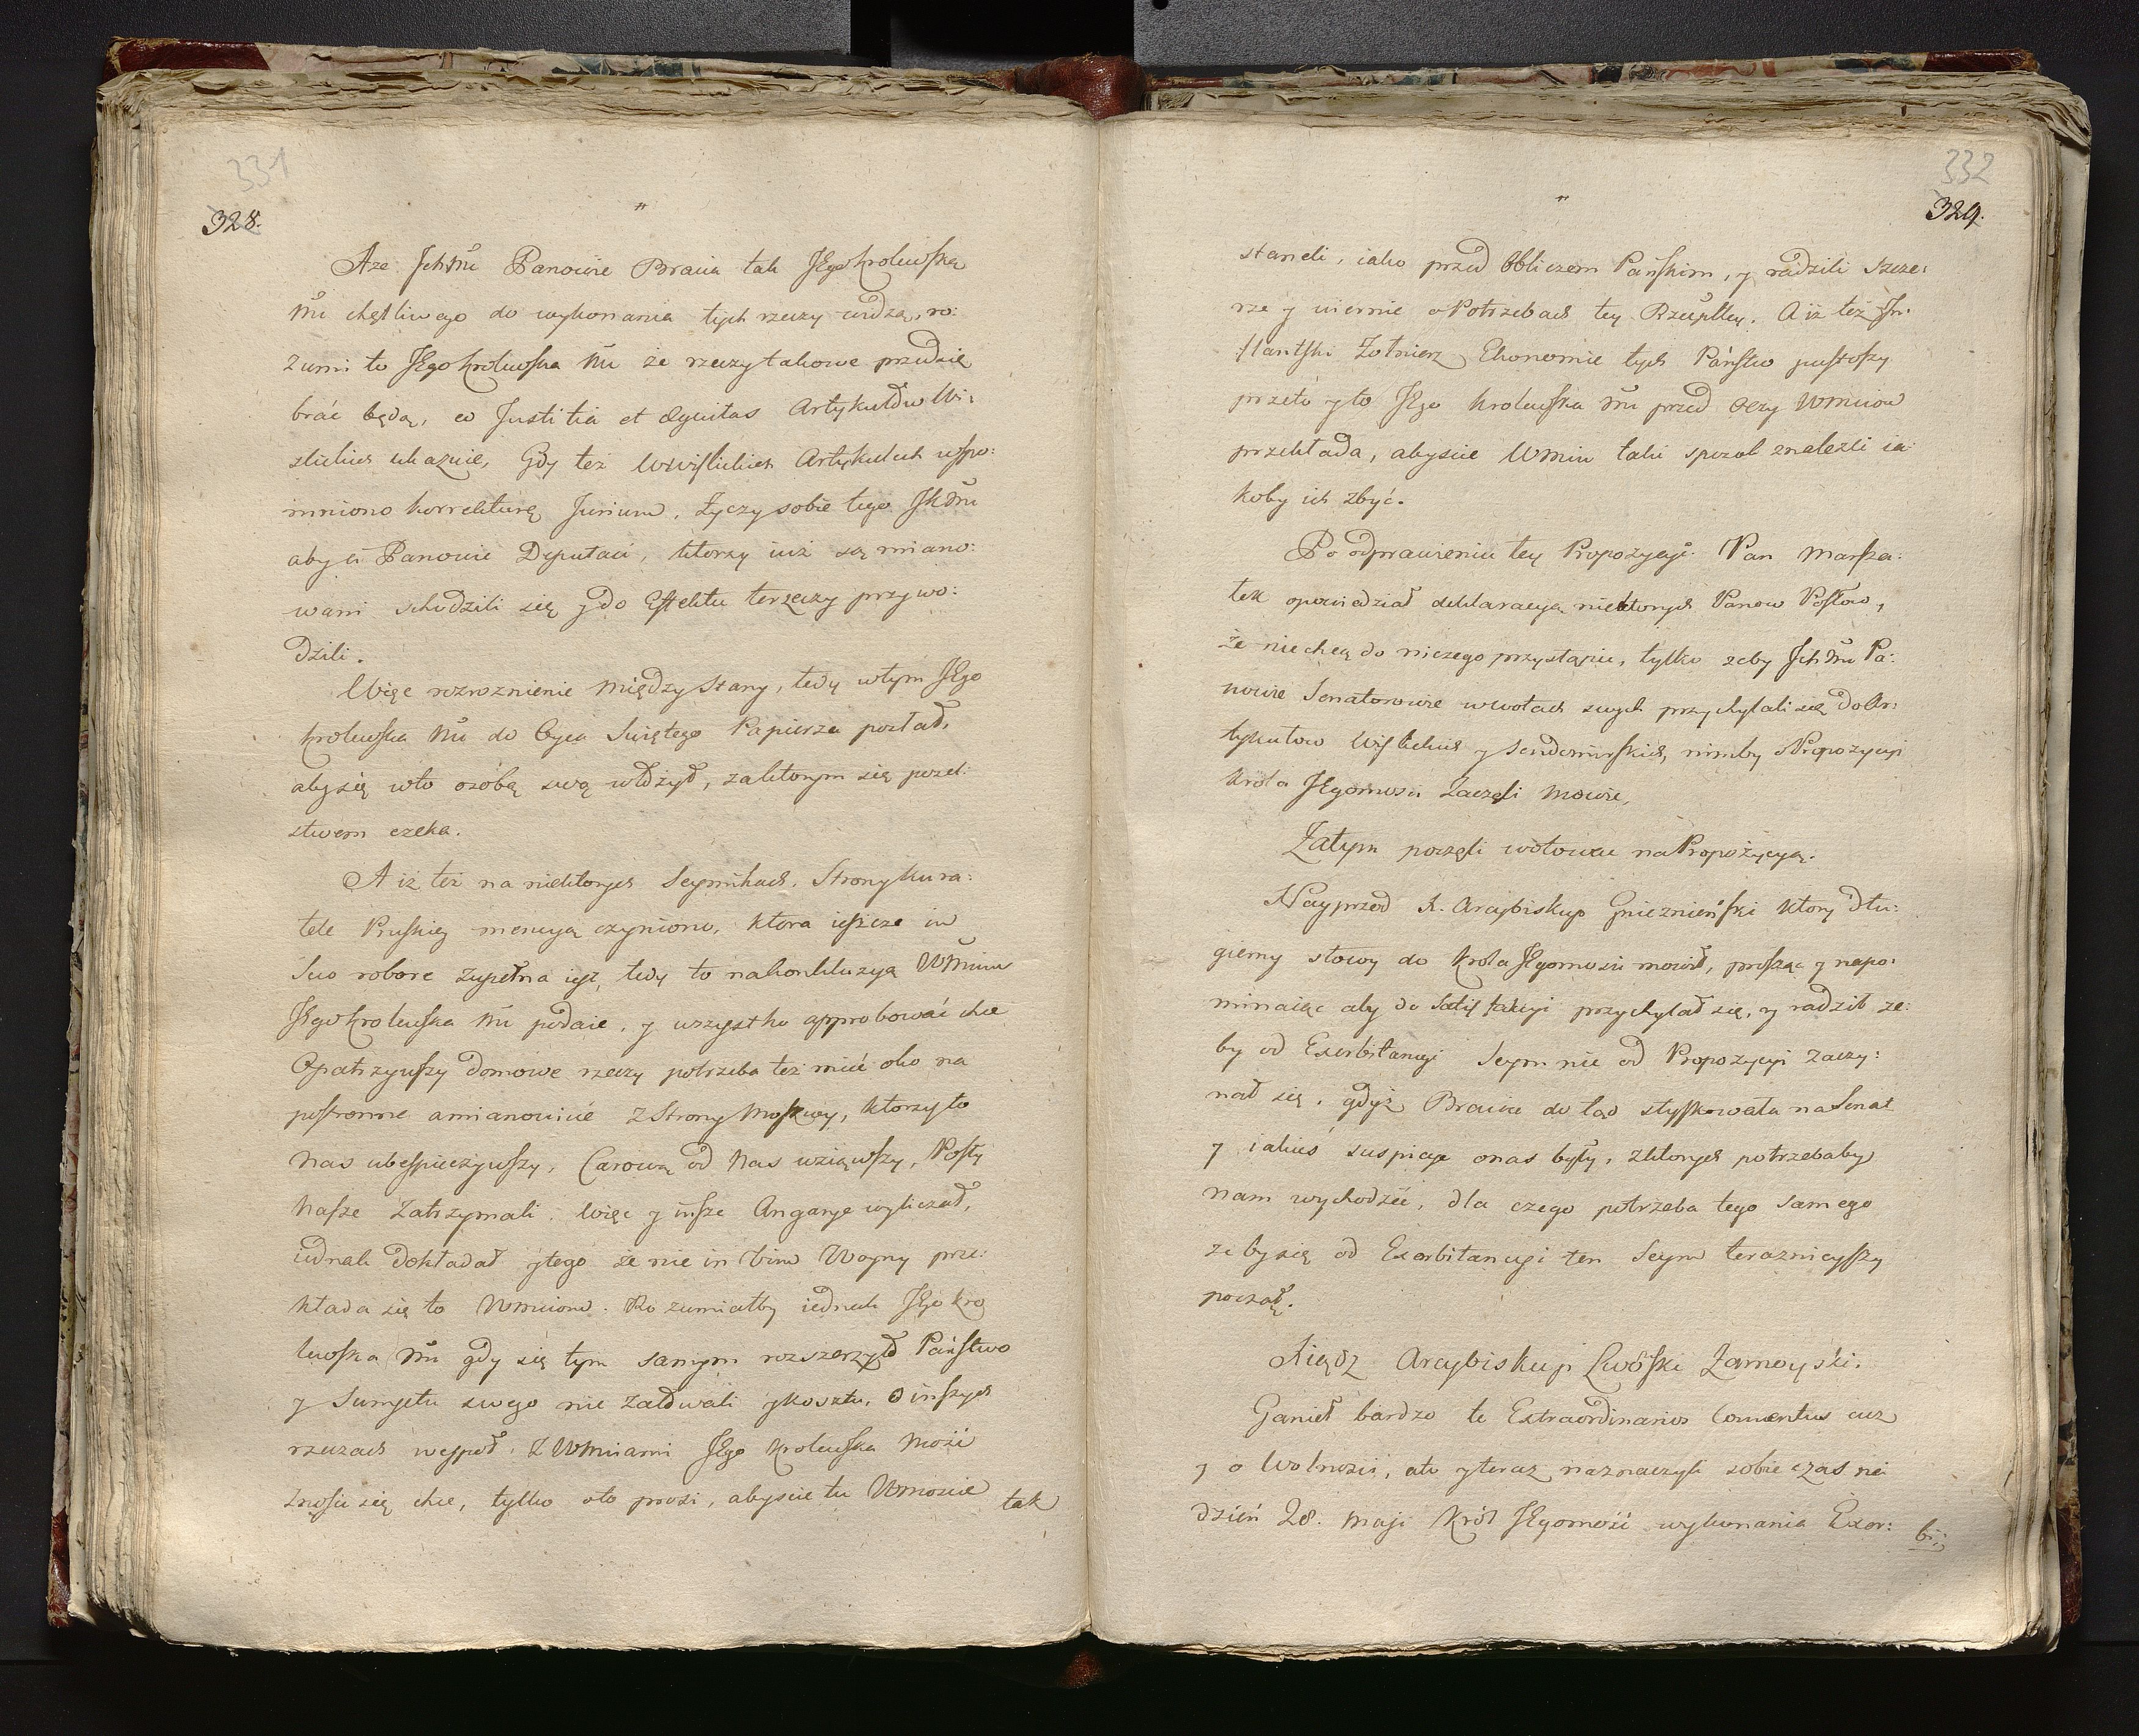 331
328.
A ze Jchmci Panowie Bracia tak JEgo krolewską
Mć chętliwego do wykonania tych rzeczy widzą, ro:
zumi to JEgo krolewska Mć że rzeczy takowe przedsię
brać będą, co Justitia et Aequitas Artykułow Wi:
slickich ukazuie, Gdy też w Wislickich Artykułach wspo:
mniono korrekturę Jurium, Życzy sobie tego JKMć
aby ci Panowie Deputaci, ktorzy iuż są miano:
wani schodzili się y do Effektu te rzeczy przywo:
dzili.
Więc rozroznienie między Stany, tedy w tym JEgo
krolewska Mć do Oyca Swiętego Papieża posłał,
aby się w to osobą swą włożył, za ktorym się posel:
stwem czeka.
A iż też na niektorych Seymikach, Strony kura:
tele Pruskiey mencyą czyniono, ktora ieszcze in
suo robore zupełna iest, tedy to na konkluzyą WMciow
JEgo krolewska Mć podaie, y wszystko approbować chce
Opatrzywszy domowe rzeczy potrzeba też mieć oko na
postronne a mianowicie z Strony Moskwy, ktorzy to
nas ubespieczywszy, Carową od nas wziąwszy, Posły
nasze zatrzymali. Więc y insze Angarye wyliczał,
iednak dokładał y tego że nie in vim Woyny prze:
kłada się to WMciom. Rozumiałby iednak JEgo kro
lewska Mć gdy się tym samym rozszerzyło Państwo
y Sumptu swego nie żałowali y kosztu, O inszych
rzeczach wespoł z WMciami JEgo krolewska Mość
znosić się chce, tylko o to prosi, abyscie tu WMoscie
tak
332
329.
staneli, iako przed Obliczem Pańskim, y radzili szcze:
rze y wiernie o Potrzebach tey Rzeupltey. A iż też In:
flantski Żołnierz Ekonomie tych Państw pustoszy
przeto y to JEgo krolewska Mć przed Oczy WMciow
przekłada, abyscie WMciu taki sposob znalezli ia:
koby ich zbyć.
Po odprawieniu tey Propozycyi. Pan Marsza:
łek opowiedział deklaracyą niektorych Panow Posłow,
że nie chcą do niczego przystąpic, tylko zeby Jchmć Pa:
nowie Senatorowie w wotach swych przychylali się do Ar:
tykułow Wislickich y Sendomirskich, nimby o Propozycyi
Króla JEgomosci zaczęli mowic,
Zatym poczęli wotowac na Propozycyą.
Nayprzod X. Arcybiskup Gnieznieński ktory dłu:
giemy słowy do Krola JEgomosci mowił, prosząc y napo:
minaiąc aby do Satisfakcyi przychylał się, y radził ze:
by od Exorbitancyi Seym nie od Propozycyi zaczy:
nał się. gdyż Bracia do tąd styskowała na Senat
y iakieś suspicye o nas były, z ktorych potrzebaby
nam wychodzić, dla czego potrzeba tego samego
zeby się od Exorbitancyi ten Seym teraznieyszy
począł.
Xiądz Arcybiskup Lwowski Zamoyski.
Ganieł bardzo te Extraordinarios Conventus
y o Wolnosci, ale y teraz naznaczyli sobie czas na
dzień 28. Maji Król JEgomość wykonania Exor:
bi: